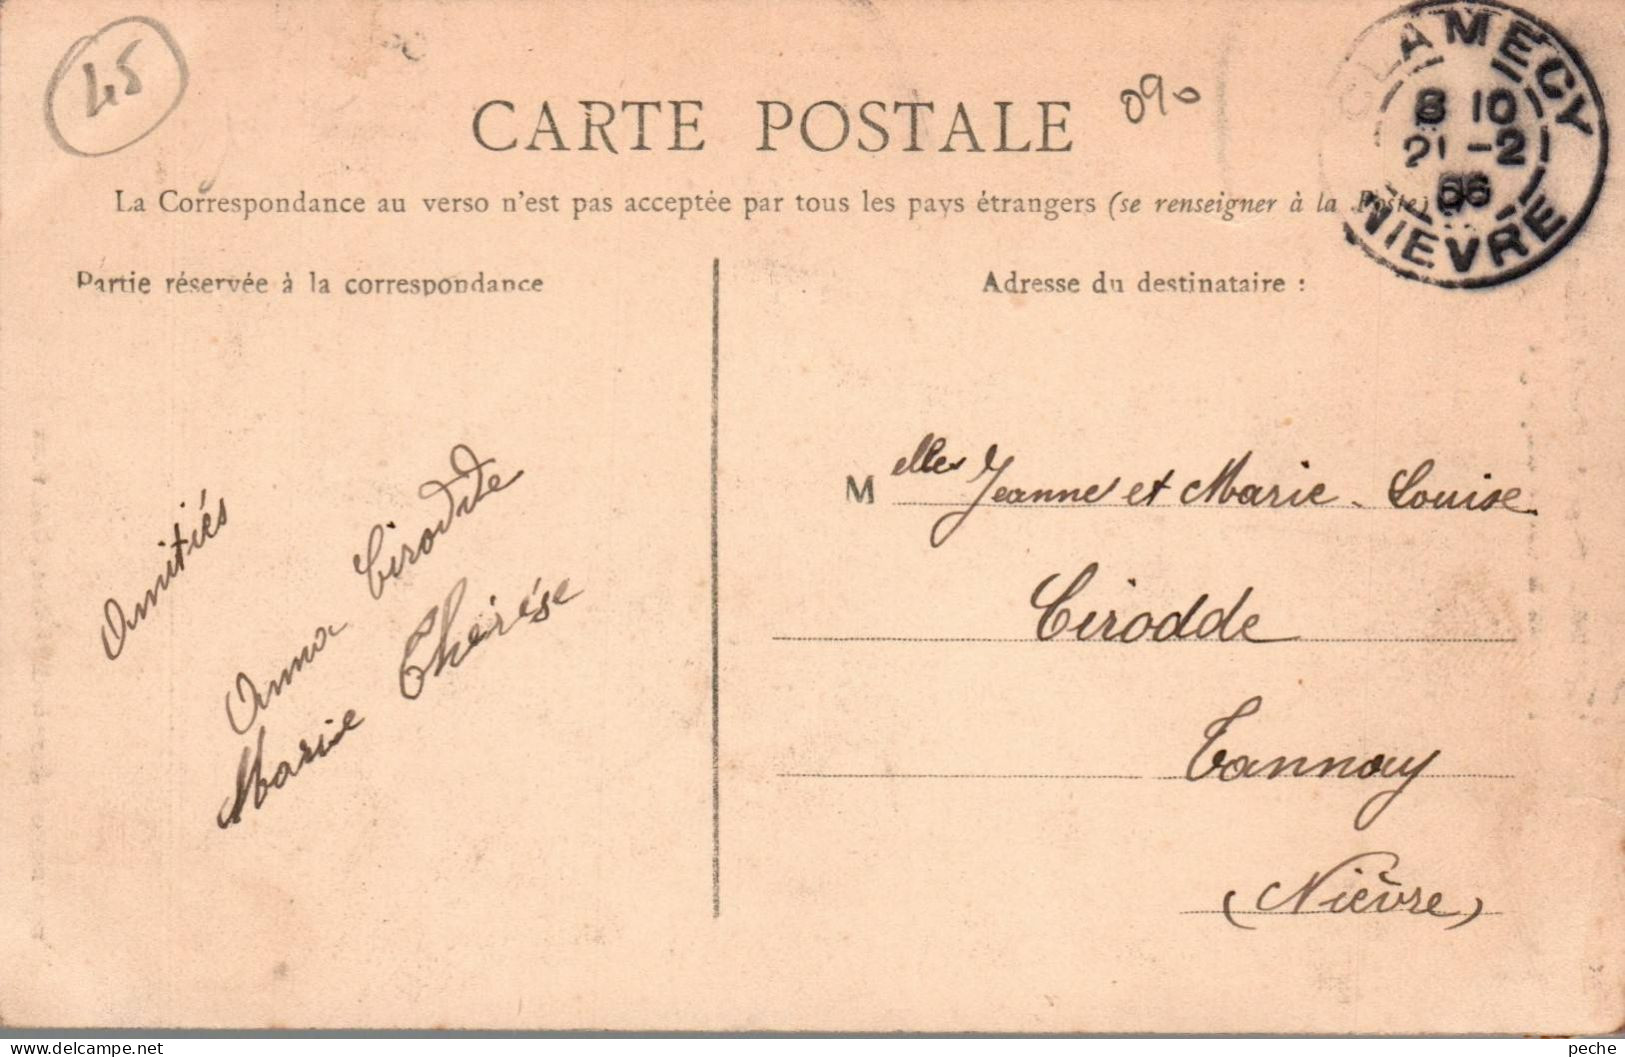 45
CARTE POSTALE
090
CLAMECY
8 10
21 -2
06
NIEVRE
La Correspondance au verso n'est pas acceptée par tous les pays étrangers (se renseigner à la Poste)
Partie réservée à la correspondance
Adresse du destinataire :
Amitiés
Anna Cirodde
Marie Thérèse
Melles Jeanne et Marie-Louise
Cirodde
Tannay
(Nièvre)
peche
Delcampe.net